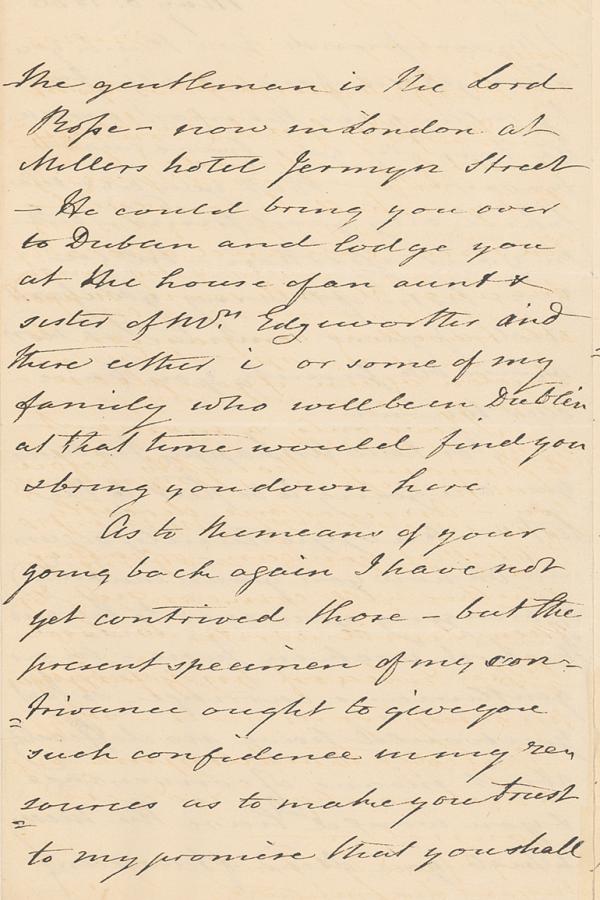 The gentleman is the Lord
Rosse - now in London at
Millers hotel Jermyn Street
- He could bring you over
to Dublin and lodge you
at the house of an aunt &
sister of Mrs. Edgeworths and
there either i or some of my
family who will be in Dublin
at that time would find you
& bring you down here
As to the means of your
going back again I have not
yet contrived those - but the
present specimen of my con=
=trivance ought to give you
such confidence in my re
=sources as to make you trust
to my promise that you shall